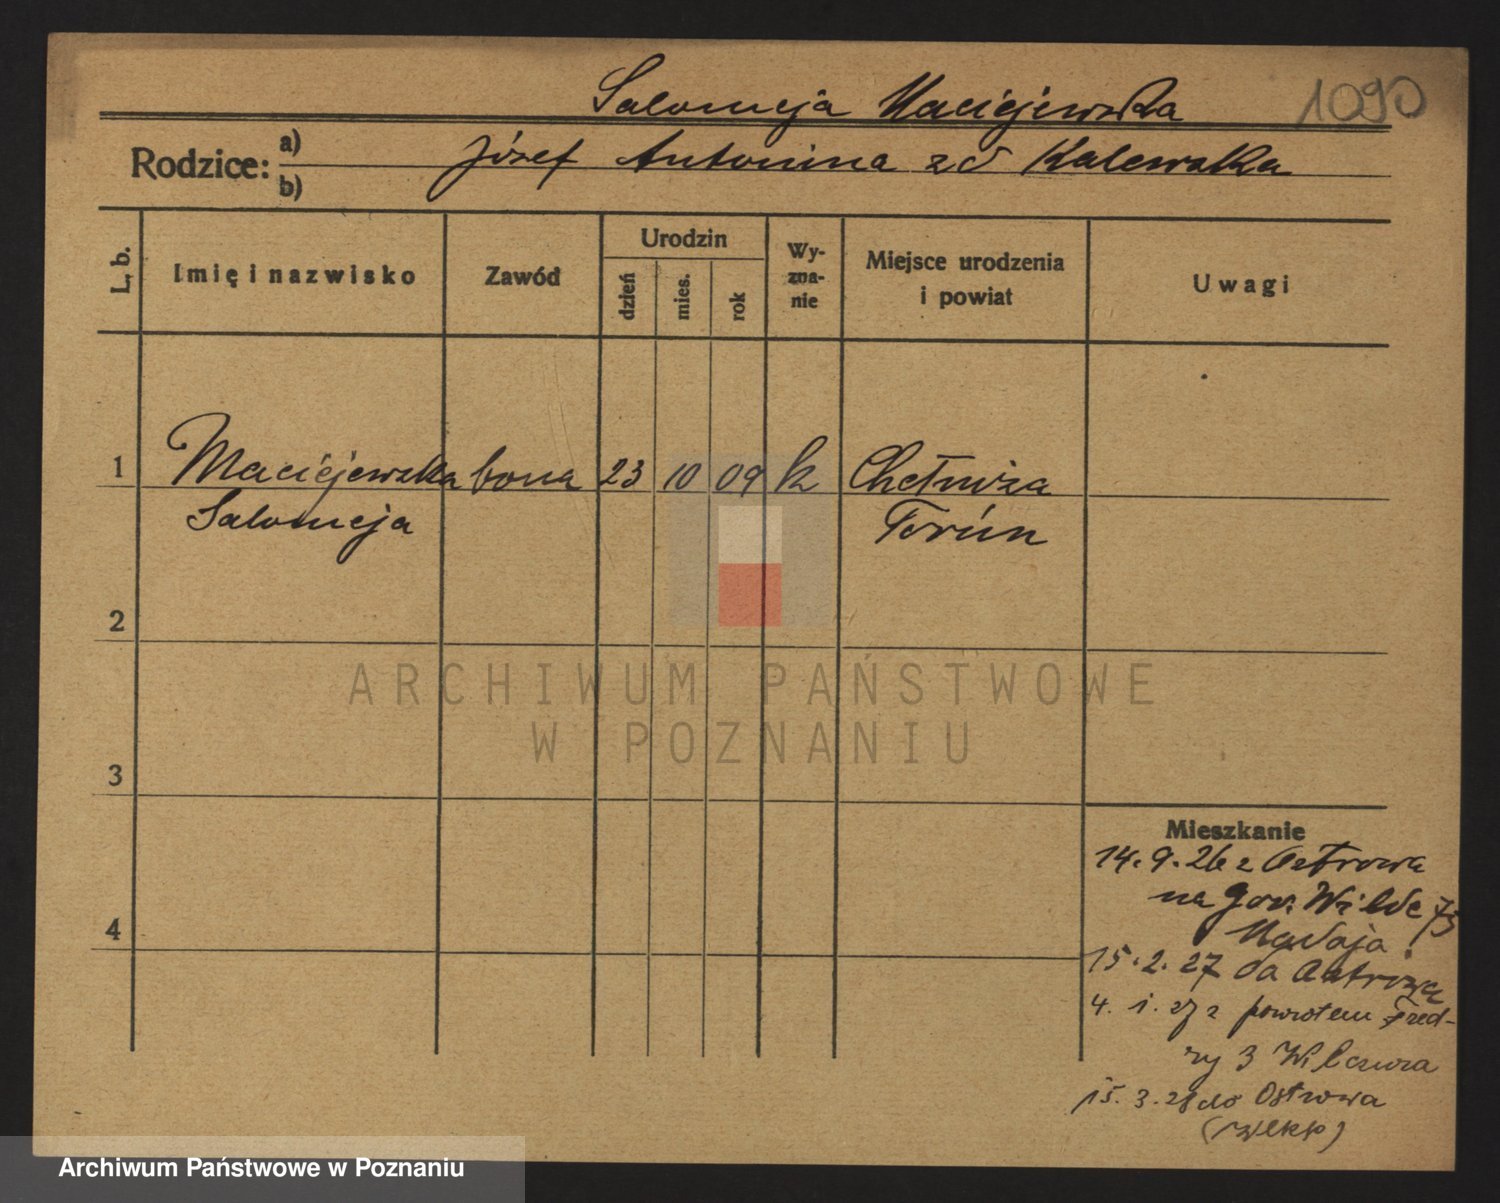 Salomeja Maciejewska
1090
Rodzice: a) b)
Józef Antonina zd Kalewska
L. b.
Imię i nazwisko
Zawód
Urodzin
dzień
mies.
rok
Wy-
zna-
nie
Miejsce urodzenia
i powiat
Uwagi
1 Maciejewska bona 23 10 09 k Chełmża
Salomeja Toruń
2
3
4
Mieszkanie
14.9.26 z Ostrowa
na Gór. Wilde 73
15.2.27 do
4. 1. z powrotem Fred-
ry 3
15.3.28 do Ostrowa
(Wlkp)
ARCHIWUM PAŃSTWOWE
W POZNANIU
Archiwum Państwowe w Poznaniu